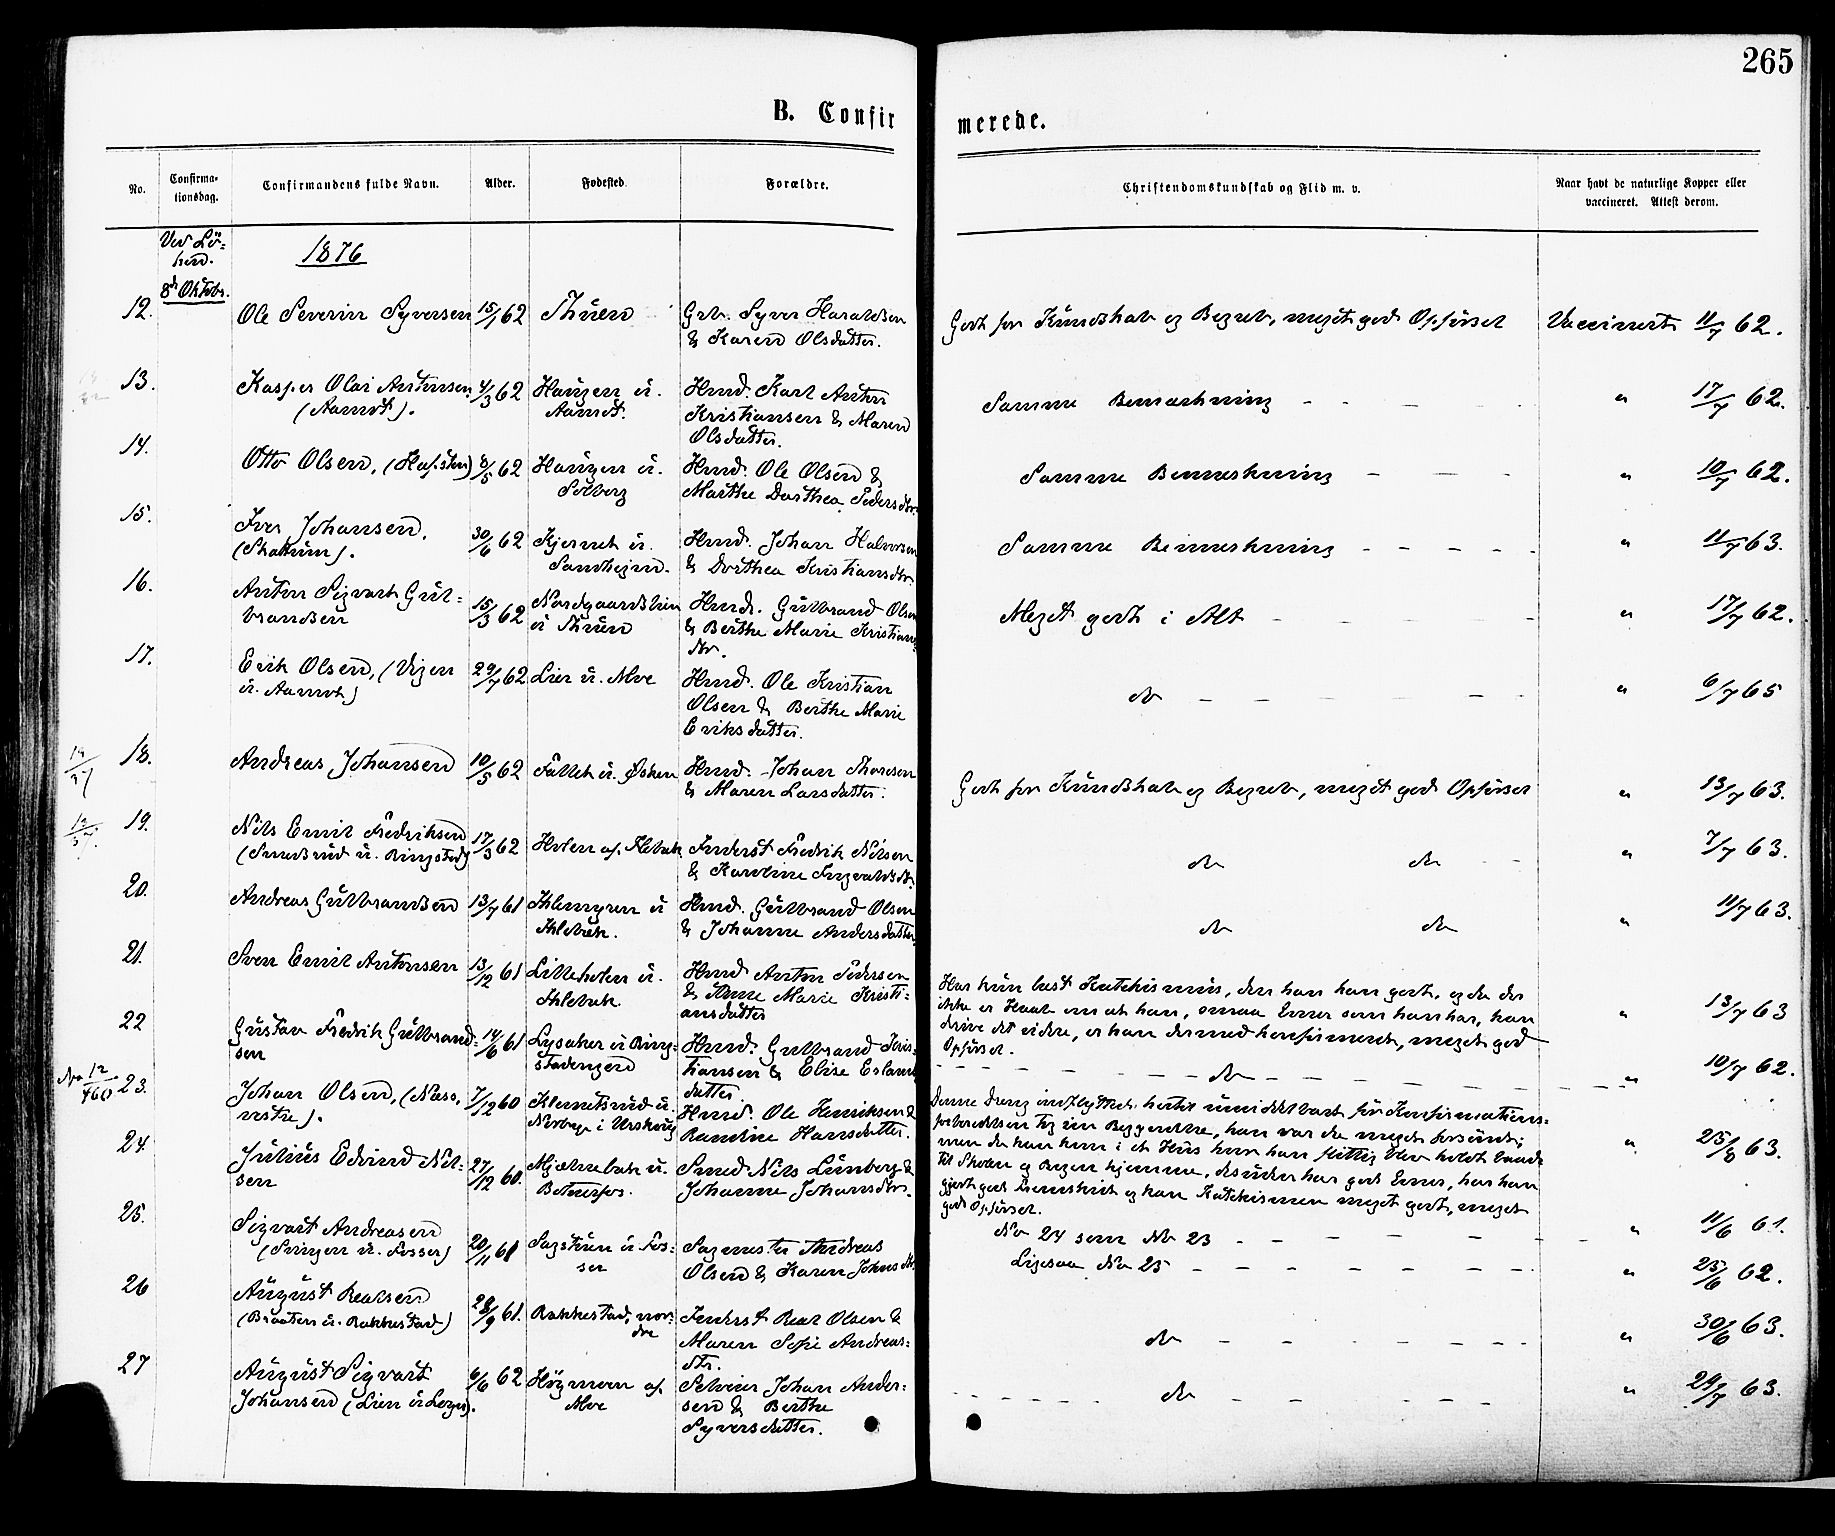 265
B. Confirmerede.
No. Confirmationsdag. Confirmandens fulde Navn. Alder. Fødested. Forældre. Christendomskundskab og Flid m. v. Naar havt de naturlige Kopper eller vaccineret. Attest derom.
1876
8de Oktobr.
12. Ole Severin Syversen 15/1 62 Thuen Grb. Syver Haraldsen & Karen Olsdatter. Godt for Kundskab og Begreb, meget god Opførsel Vaccineret 11/7 62.
13. Kasper Olai Antonsen (Aamodt). 4/3 62 Haugen u. Aamodt. Hmd. Karl Anton Kristiansen & Maren Olsdatter. Samme Bemærkning " 17/7 62.
14. Otto Olsen, (Hafsten) 8/5 62 Haugen u. Solberg Hmd. Ole Olsen & Marthe Dorthea Pedersdtr. Samme Bemerkning " 10/7 62.
15. Iver Johansen, 30/6 62 Kjernet u. Hmd. Johan Halvorsen & Dorthea Kristiansdtr. Samme Bemerkning " 11/7 63.
16. Anton Sigvart Gulbrandsen 15/3 62 u. Thuen Hmd. Gulbrand Olsen & Berthe Marie Kristiansdtr. Meget godt i Alt " 17/7 62.
17. Erik Olsen, (Vigen u. Aamodt) 29/7 62 Lier u. Alve Hmd. Ole Kristian Olsen & Berthe Marie Eriksdatter. do " 6/7 65
18. Andreas Johansen 10/5 62 Fallet u. Hmd. Johan Thoresen & Maren Larsdatter. Godt for Kundskab og Begreb, meget god Opførsel " 13/7 63.
19. Nils Emil Fredriksen (Smedsrud u. Ringstad) 17/3 62 Holen af Inderst Fredrik Nilsen & Karoline Ingvaldsdtr. do do " 7/7 63.
20. Andreas Gulbrandsen 13/7 61 Hmd. Gulbrand Olsen & Johanne Andersdatter. do do " 11/7 63.
21. Sven Emil Antonsen 13/12 61 Lilleholen u. Hmd Anton Pedersen & Anne Marie Kristiansdatter Har kun læst Katekismus, den kan han godt, og da der ikke er Haab om at han, smaa Evner som han har, kan drive det videre, er han dermed konfirmeret, meget god Opførsel. " 13/7 63
22 Gustav Fredrik Gulbrandsen 14/6 61 Lysaker u Ringstadengen Hmd. Gulbrand Kristiansen & Elise Erlandsdatter do " 10/7 62.
23. Johan Olsen, (Næss, vestre). 7/12 60 i Urskoug Hmd. Ole Henriksen & Randine Hansdatter. Denne Dreng indflyttede hertil umiddelbart før Konfirmationsforberedelsen tog sin Begyndelse, han var da meget forsømt; men da han kom i et Hus hvor han flittig blev holdt baade til Skolen og Bogen hjemme, desuden har gode Evner, har han gjort god Fremskridt og kan Katekismen meget godt, meget god Opførsel. " 25/8 63.
24. Julius Edvind Nilsen 27/12 60. Mjølnebak u. Botnerfos. Smed Nils Lunberg & Johanne Johansdtr. No 24 som No 23 " 11/6 61.
25. Sigvart Andreasen (Svingen u. Fosser) 20/11 61 Sagstuen u Fosser Sagmester Andreas Olsen & Karen Johnsdtr. Ligesaa No 25 " 25/6 62.
26 August Realsen (Braaten u. Rakkestad) 28/9 61. Rakkestad, nordre Inderst Real Olsen & Maren Sofie Andreasdtr. do " 30/6 63.
27 August Sigvart Johansen 6/6 62 Høgmoen af Alve Selveier Johan Andersen & Berthe Syversdatter. do " 29/7 63.